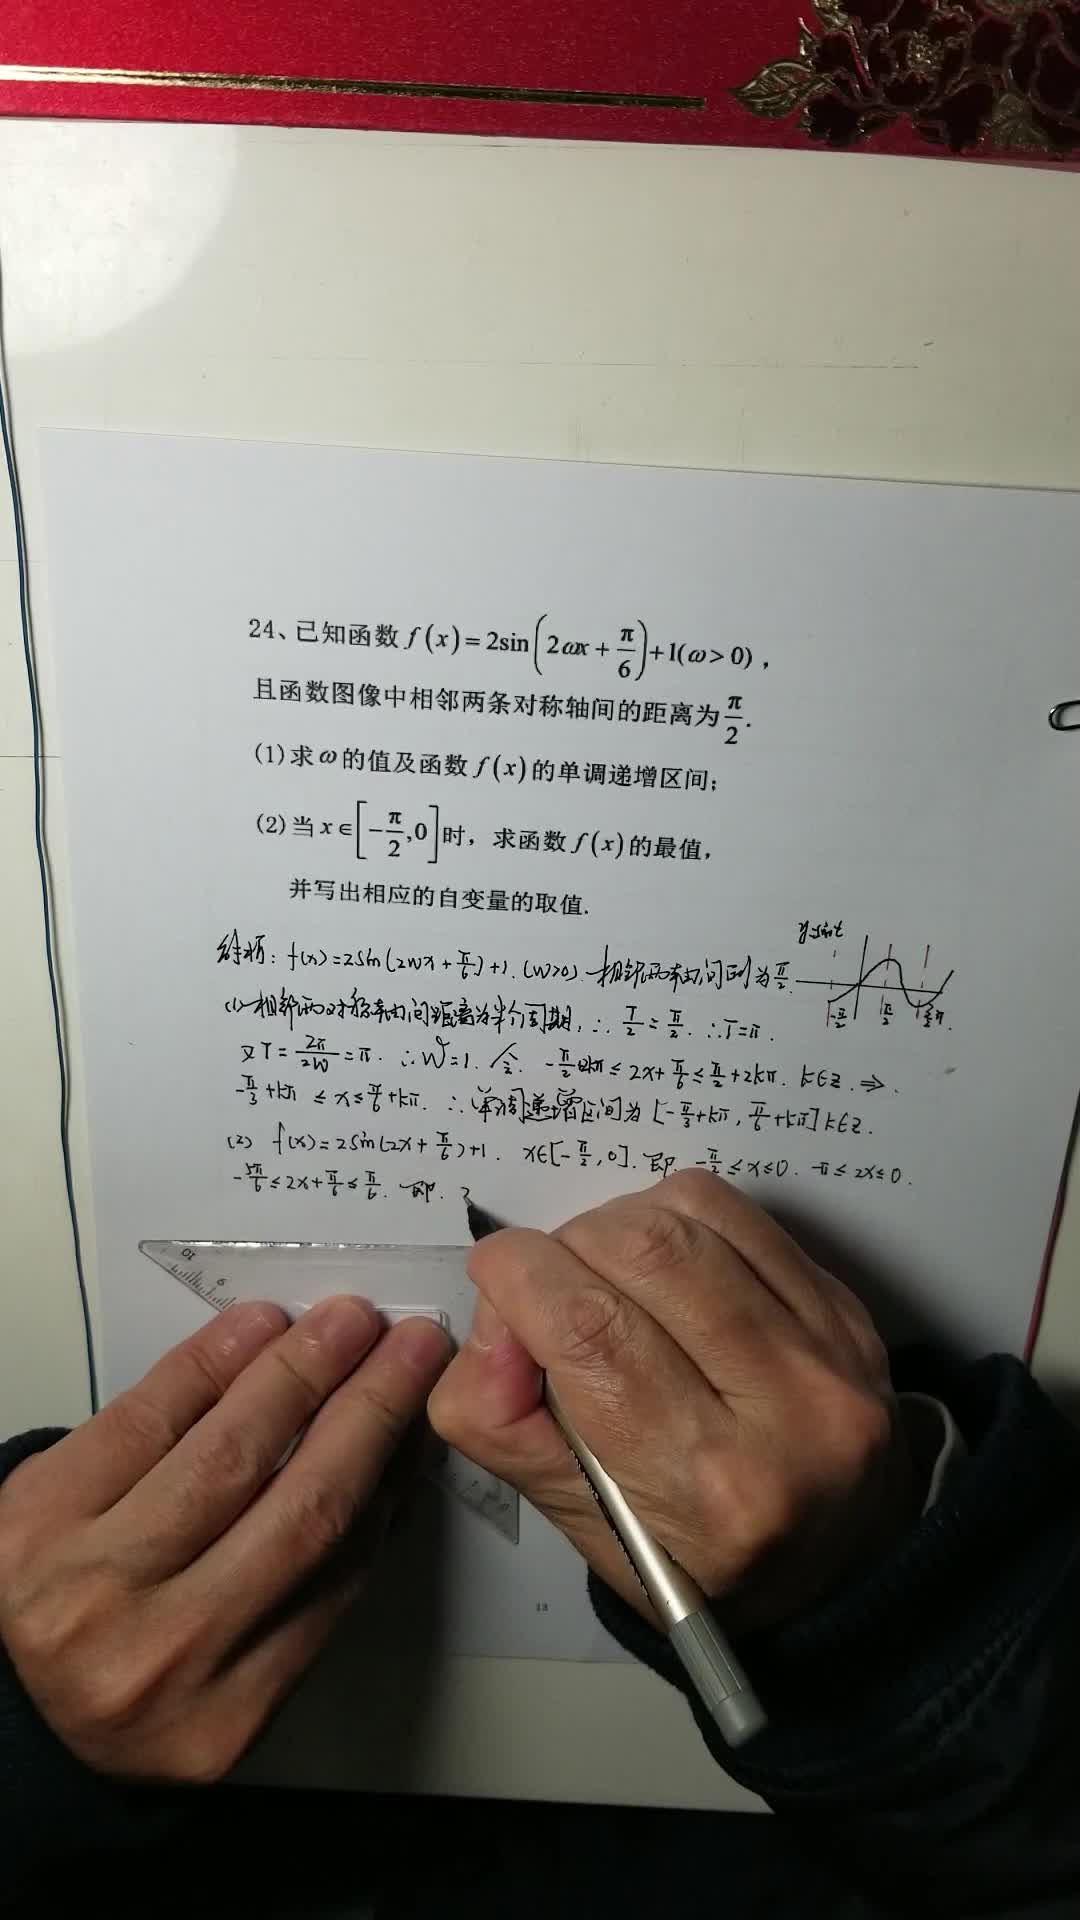 24、已知函数 f(x)=2sin(2ωx+π/6)+1(ω>0),
且函数图像中相邻两条对称轴间的距离为π/2.
(1)求ω的值及函数f(x)的单调递增区间;
(2)当x∈[-π/2,0]时，求函数f(x)的最值，
并写出相应的自变量的取值.
y=sint
-π/2 π/2 3/2π.
解析: f(x)=2sin(2Wx+π/6)+1. (W>0). 相邻两轴间距为π/2.
(1) 相邻两对称轴间距离为半个周期, ∴ T/2=π/2. ∴T=π.
又T=2π/2W=π. ∴W=1. 令. -π/2+2kπ≤2x+π/6≤π/2+2kπ. k∈Z. ⇒.
-π/3+kπ≤x≤π/6+kπ. ∴单调递增区间为[-π/3+kπ, π/6+kπ] k∈Z.
(2) f(x)=2sin(2x+π/6)+1. x∈[-π/2,0]. 即. -π/2≤x≤0. -π≤2x≤0.
-5π/6≤2x+π/6≤π/6. 即.
10
9
13